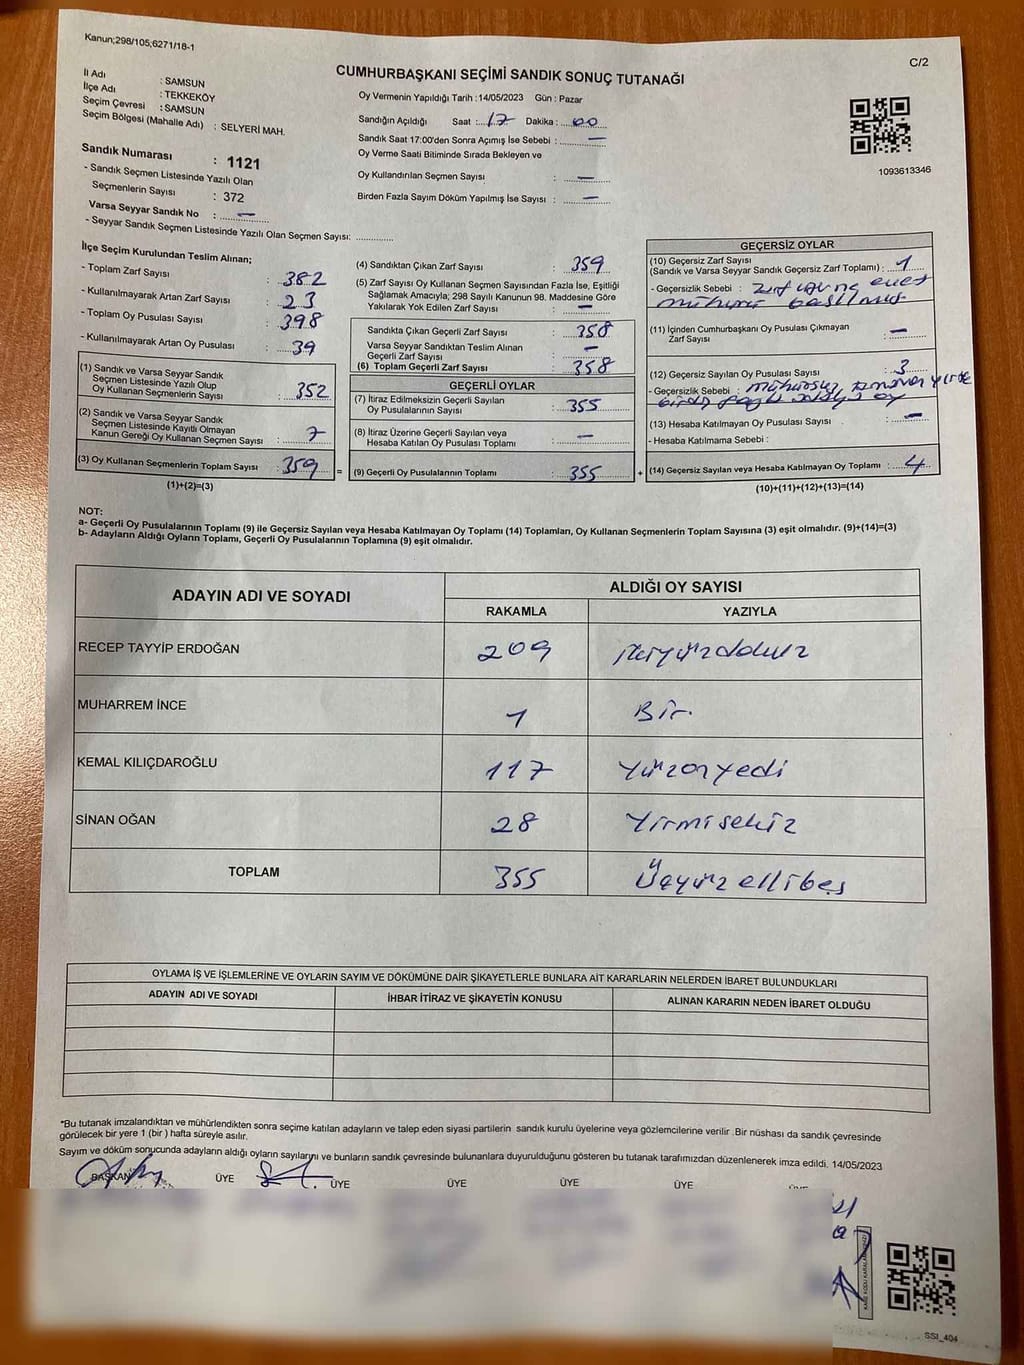 Kanun;298/105;6271/18-1
C/2
CUMHURBAŞKANI SEÇİMİ SANDIK SONUÇ TUTANAĞI
İl Adı : SAMSUN
İlçe Adı : TEKKEKÖY
Seçim Çevresi : SAMSUN
Seçim Bölgesi (Mahalle Adı) : SELYERİ MAH.
Sandık Numarası : 1121
- Sandık Seçmen Listesinde Yazılı Olan
Seçmenlerin Sayısı : 372
Varsa Seyyar Sandık No : —
- Seyyar Sandık Seçmen Listesinde Yazılı Olan Seçmen Sayısı: ..............
Oy Vermenin Yapıldığı Tarih : 14/05/2023 Gün : Pazar
Sandığın Açıldığı Saat : 17 Dakika : 00
Sandık Saat 17:00'den Sonra Açımış İse Sebebi : —
Oy Verme Saati Bitiminde Sırada Bekleyen ve
Oy Kullandırılan Seçmen Sayısı : —
Birden Fazla Sayım Döküm Yapılmış İse Sayısı : —
1093613346
İlçe Seçim Kurulundan Teslim Alınan;
- Toplam Zarf Sayısı : 382
- Kullanılmayarak Artan Zarf Sayısı : 23
- Toplam Oy Pusulası Sayısı : 398
- Kullanılmayarak Artan Oy Pusulası : 39
(1) Sandık ve Varsa Seyyar Sandık
Seçmen Listesinde Yazılı Olup
Oy Kullanan Seçmenlerin Sayısı : 352
(2) Sandık ve Varsa Seyyar Sandık
Seçmen Listesinde Kayıtlı Olmayan
Kanun Gereği Oy Kullanan Seçmen Sayısı : 7
(3) Oy Kullanan Seçmenlerin Toplam Sayısı : 359
(1)+(2)=(3)
(4) Sandıktan Çıkan Zarf Sayısı : 359
(5) Zarf Sayısı Oy Kullanan Seçmen Sayısından Fazla İse, Eşitliği
Sağlamak Amacıyla; 298 Sayılı Kanunun 98. Maddesine Göre
Yakılarak Yok Edilen Zarf Sayısı : —
Sandıkta Çıkan Geçerli Zarf Sayısı : 358
Varsa Seyyar Sandıktan Teslim Alınan
Geçerli Zarf Sayısı : —
(6) Toplam Geçerli Zarf Sayısı : 358
GEÇERLİ OYLAR
(7) İtiraz Edilmeksizin Geçerli Sayılan
Oy Pusulalarının Sayısı : 355
(8) İtiraz Üzerine Geçerli Sayılan veya
Hesaba Katılan Oy Pusulası Toplamı : —
= (9) Geçerli Oy Pusulalarının Toplamı : 355 +
GEÇERSİZ OYLAR
(10) Geçersiz Zarf Sayısı
(Sandık ve Varsa Seyyar Sandık Geçersiz Zarf Toplamı) : 1
- Geçersizlik Sebebi : zarf üzerine evet
mührü basılması
(11) İçinden Cumhurbaşkanı Oy Pusulası Çıkmayan
Zarf Sayısı : —
(12) Geçersiz Sayılan Oy Pusulası Sayısı : 3
- Geçersizlik Sebebi : mühürsüz,
birden fazla adaya oy
(13) Hesaba Katılmayan Oy Pusulası Sayısı : —
- Hesaba Katılmama Sebebi :
(14) Geçersiz Sayılan veya Hesaba Katılmayan Oy Toplamı : 4
(10)+(11)+(12)+(13)=(14)
NOT:
a- Geçerli Oy Pusulalarının Toplamı (9) ile Geçersiz Sayılan veya Hesaba Katılmayan Oy Toplamı (14) Toplamları, Oy Kullanan Seçmenlerin Toplam Sayısına (3) eşit olmalıdır. (9)+(14)=(3)
b- Adayların Aldığı Oyların Toplamı, Geçerli Oy Pusulalarının Toplamına (9) eşit olmalıdır.
ADAYIN ADI VE SOYADI
ALDIĞI OY SAYISI
RAKAMLA YAZIYLA
RECEP TAYYİP ERDOĞAN 209 ikiyüzdokuz
MUHARREM İNCE 1 Bir
KEMAL KILIÇDAROĞLU 117 Yüzonyedi
SİNAN OĞAN 28 Yirmisekiz
TOPLAM 355 Üçyüzellibeş
OYLAMA İŞ VE İŞLEMLERİNE VE OYLARIN SAYIM VE DÖKÜMÜNE DAİR ŞİKAYETLERLE BUNLARA AİT KARARLARIN NELERDEN İBARET BULUNDUKLARI
ADAYIN ADI VE SOYADI İHBAR İTİRAZ VE ŞİKAYETİN KONUSU ALINAN KARARIN NEDEN İBARET OLDUĞU
*Bu tutanak imzalandıktan ve mühürlendikten sonra seçime katılan adayların ve talep eden siyasi partilerin sandık kurulu üyelerine veya gözlemcilerine verilir .Bir nüshası da sandık çevresinde
görülecek bir yere 1 (bir ) hafta süreyle asılır.
Sayım ve döküm sonucunda adayların aldığı oyların sayılarını ve bunların sandık çevresinde bulunanlara duyurulduğunu gösteren bu tutanak tarafımızdan düzenlenerek imza edildi. 14/05/2023
BAŞKAN ÜYE ÜYE ÜYE ÜYE ÜYE
SSI_404